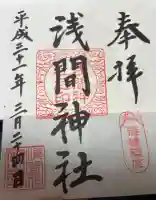 奉拝
浅間神社
平成三十一年三月二十四日